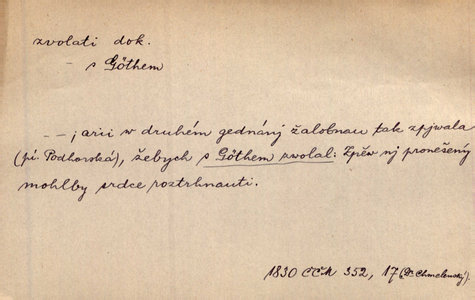 zvolati dok.
– s Göthem
– – ; arii w druhém gednánj žalobnau tak zpjwala
(pí. Podhorská), žebych s Göthem zwolal: Zpěw nj pronešený
mohlby srdce roztrhnauti.
1830 ČČM 352, 17 (Dr. Chmelenský).